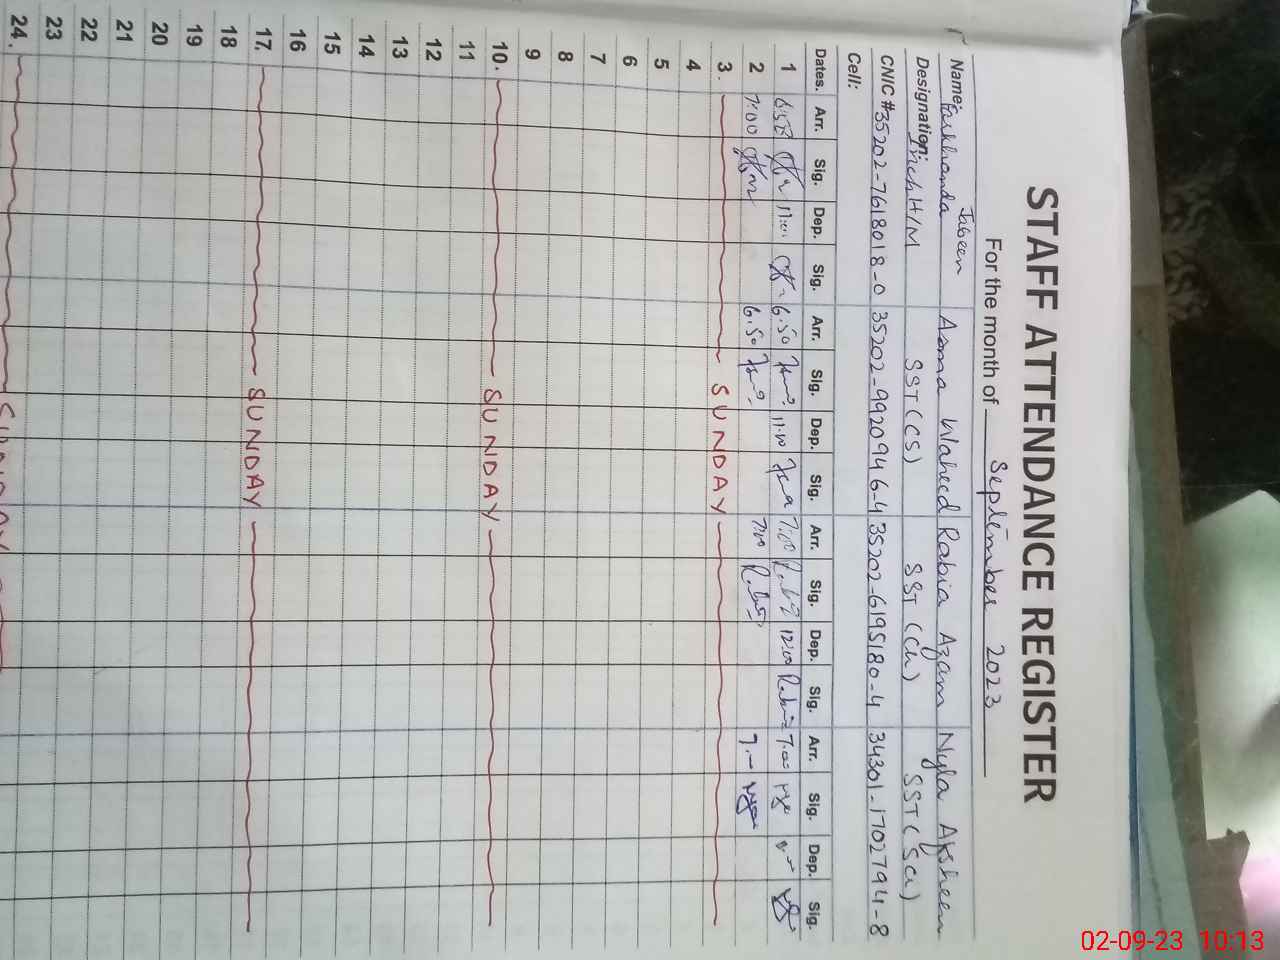 STAFF ATTENDANCE REGISTER
For the month of September 2023
Name: Farkhanda Jabeen Asma Waheed Rabia Azam Nyla Afsheen
Designation: H/M SST (CS) SST (Ch) SST (Sci)
CNIC # 35202-7618018-0 35202-9920946-4 35202-6195180-4 34301-1702794-8
Cell:
Dates. Arr. Sig. Dep. Sig. Arr. Sig. Dep. Sig. Arr. Sig. Dep. Sig. Arr. Sig. Dep. Sig.
1 11:00 6.50 11:00 7:00 12:00 7:00
2 7:00 6.50 7:00 7:00
3. SUNDAY
4
5
6
7
8
9
10. SUNDAY
11
12
13
14
15
16
17. SUNDAY
18
19
20
21
22
23
24. SUNDAY
02-09-23 10:13